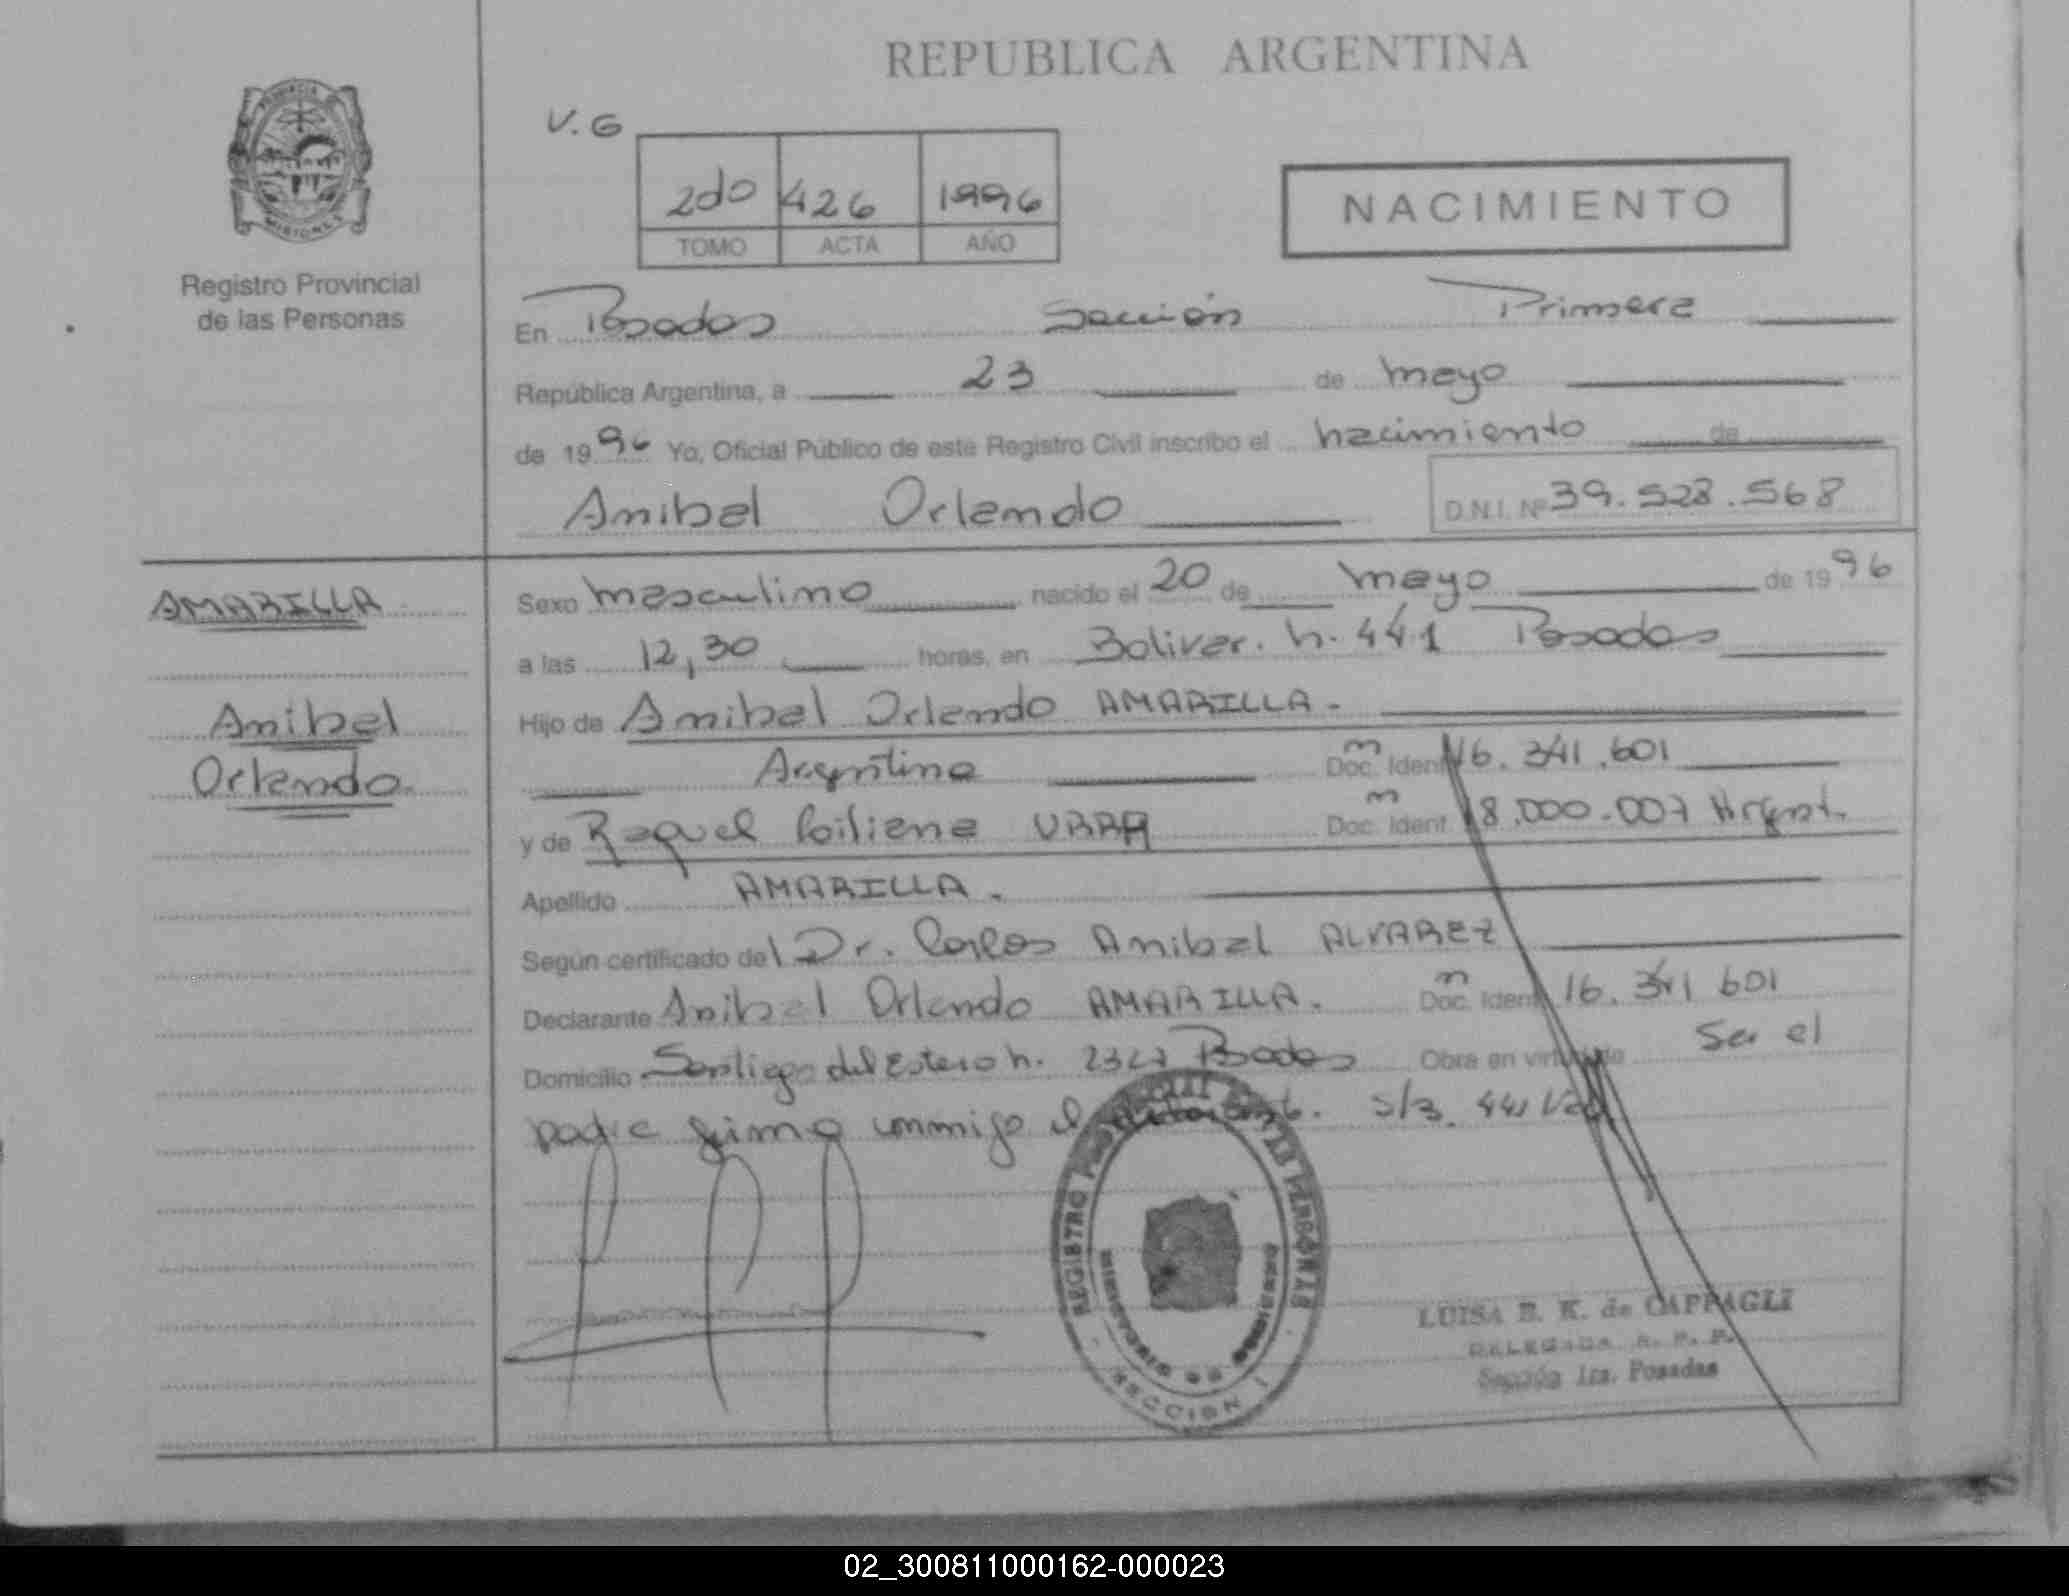 REPUBLICA ARGENTINA
PROVINCIA
MISIONES
Registro Provincial
de las Personas
V. G
2do 426 1996
TOMO ACTA AÑO
NACIMIENTO
En Posadas Sección Primera
República Argentina, a 23 de mayo
de 1996 Yo, Oficial Público de este Registro Civil inscribo el nacimiento de
Anibal Orlando D.N.I. Nº 39.528.568
AMARILLA
Anibal
Orlando.
Sexo masculino nacido el 20 de mayo de 1996
a las 12,30 horas, en Bolivar. n. 441 Posadas
Hijo de Anibal Orlando AMARILLA.
Argentino Doc. Ident. 16.341.601
y de Raquel URRA Doc. Ident. 18.000.007 Argent.
Apellido AMARILLA.
Según certificado del Dr. Carlos Anibal ALVAREZ
Declarante Anibal Orlando AMARILLA. Doc. Ident. 16.341 601
Domicilio Santiago del Estero n. 2327 Posadas Obra en virtud de Ser el
padre firma conmigo el
REGISTRO PROVINCIAL DE LAS PERSONAS
SECCION 1
LUISA E. K. de CAPPAGLI
DELEGADA R. P. P.
Sección 1ra. Posadas
02_300811000162-000023